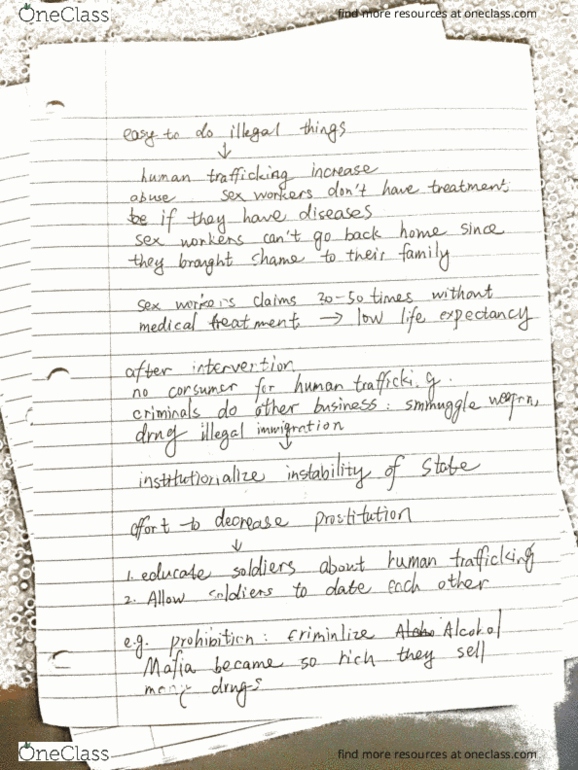 OneClass
find more resources at oneclass.com
easy to do illegal things
↓
human trafficking increase
abuse sex workers don't have treatment
be if they have diseases
sex workers can't go back home since
they braught shame to their family
sex workers claims 20-50 times without
medical treatment → low life expectancy
after intervertion
no consumer for human trafficki g.
criminals do other business: smmuggle
drug illegal immigration
↓
institutiorialize instability of State
effort to decrease prostitution
↓
1. educate soldiers about human trafficking
2. Allow soldiers to date each other
e.g. prohibition: criminlize Alcohol
Mafia became so rich they sell
many drugs
OneClass
find more resources at oneclass.com